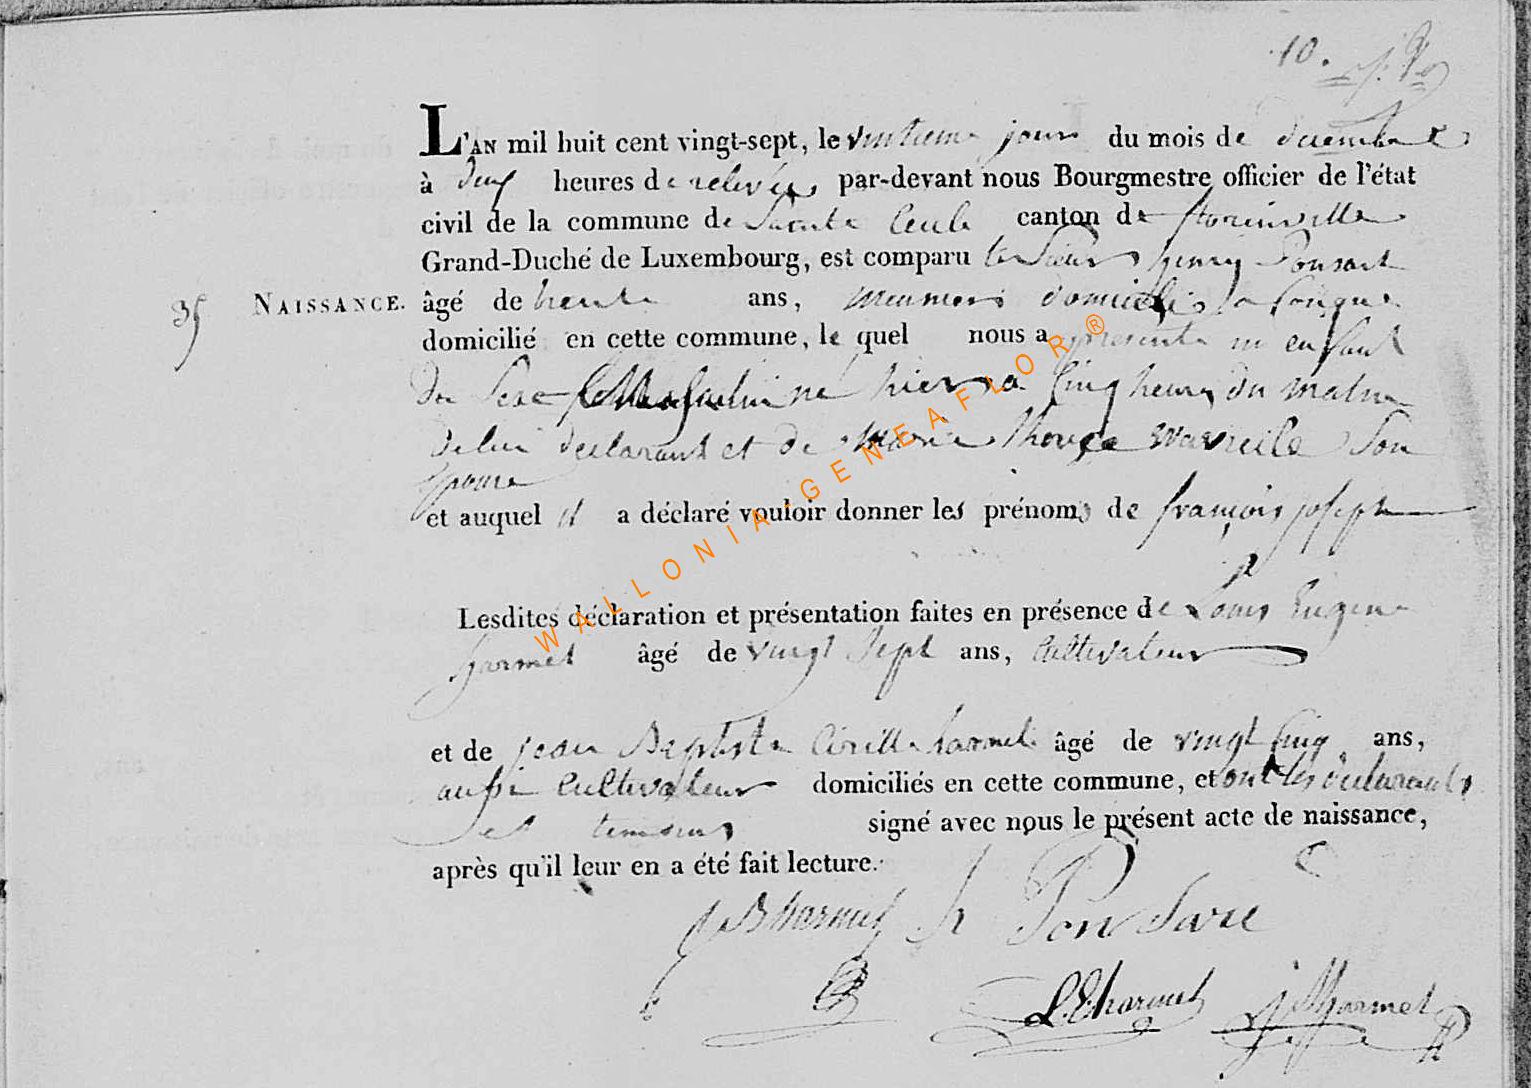 10.
L'AN mil huit cent vingt-sept, le vintieme jour du mois de decembre
à deux heures de relevée, par-devant nous Bourgmestre officier de l'état
civil de la commune de Sainte Cecile canton de florenville
Grand-Duché de Luxembourg, est comparu le Sieur henry Ponsart
35 NAISSANCE. âgé de trente ans, meunier domicilié a
domicilié en cette commune, le quel nous a presenté un enfant
du Sexe Masculin né hier a Cinq heures du matin
de lui declarant et de Marie therese Son
Epouse
et auquel il a déclaré vouloir donner les prénoms de françois joseph
Lesdites déclaration et présentation faites en présence de Louis Eugene
harmel âgé de vingt Sept ans, Cultivateur
et de jean Baptiste Cirille harmel âgé de vingt Cinq ans,
aussi Cultivateur domiciliés en cette commune, et ont les declarants
et temoins signé avec nous le présent acte de naissance,
après qu'il leur en a été fait lecture.
JB harmel h Ponsart
L.E harmel J harmel
WALLONIA-GENEAFLOR®